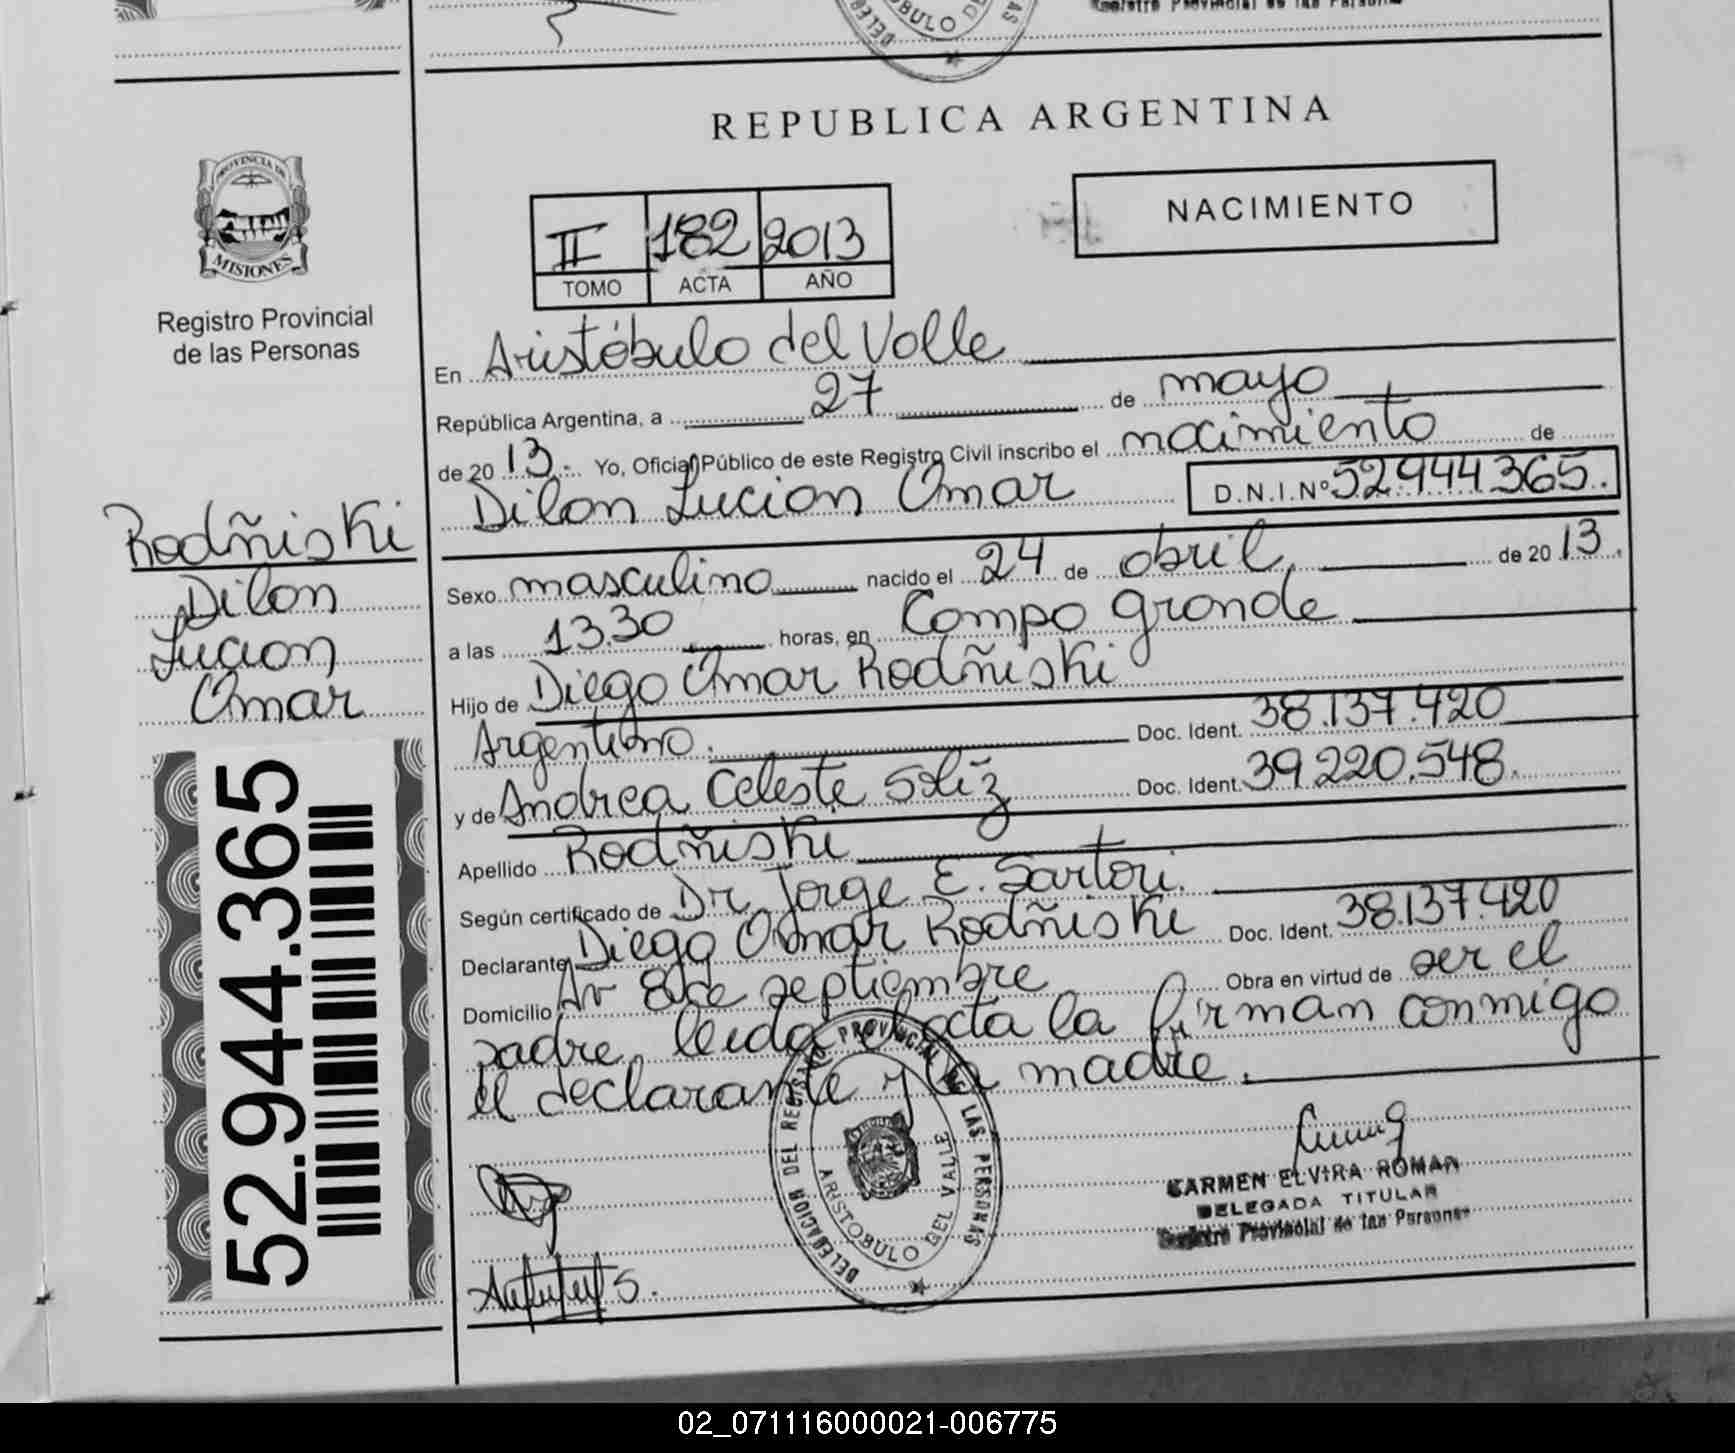 REPUBLICA ARGENTINA
PROVINCIA DE
MISIONES
Registro Provincial
de las Personas
NACIMIENTO
II 182 2013
TOMO ACTA AÑO
En Aristóbulo del Valle
República Argentina, a 27 de mayo
de 2013.- Yo, Oficial Público de este Registro Civil inscribo el nacimiento de
Dilan Lucian Omar D.N.I.Nº 52.944.365.
Sexo masculino nacido el 24 de abril de 2013.
a las 13.30 horas, en Campo Grande
Hijo de Diego Omar Rodñiski
Argentino. Doc. Ident. 38.137.420
y de Andrea Celeste Soliz Doc. Ident. 39.220.548.
Apellido Rodñiski
Según certificado de Dr. Jorge E. Sartori.
Declarante Diego Omar Rodñiski Doc. Ident. 38.137.420
Domicilio Av 8 de septiembre Obra en virtud de ser el
padre, leida el acta la firman conmigo
el declarante y la madre.
Rodñiski
Dilan
Lucian
Omar
52.944.365
DELEGACION DEL REGISTRO PROVINCIAL DE LAS PERSONAS
ARISTOBULO DEL VALLE
CARMEN ELVIRA ROMAN
DELEGADA TITULAR
Registro Provincial de las Personas
02_071116000021-006775